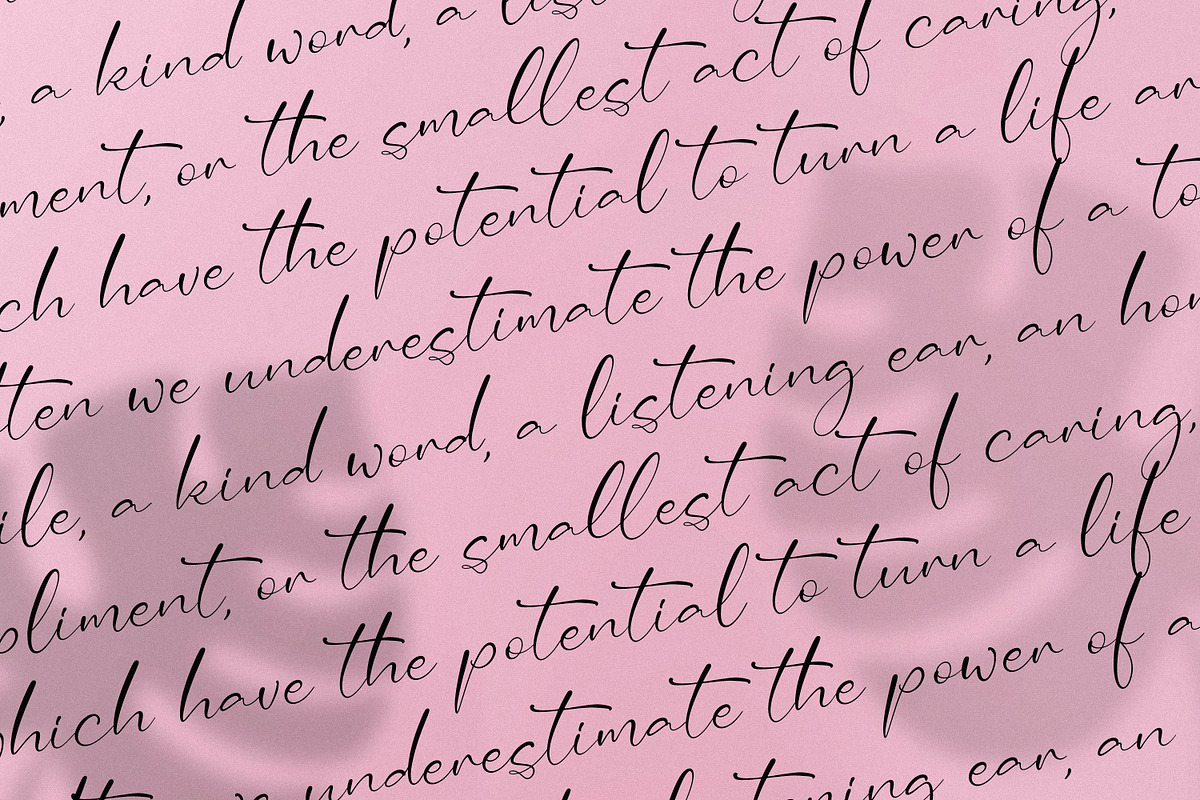 a kind word, a
ment, or the smallest act of caring,
ch have the potential to turn a life
ten we underestimate the power of a
ile, a kind word, a listening ear, an
pliment, or the smallest act of caring,
which have the potential to turn a life
underestimate the power of a
ear, an